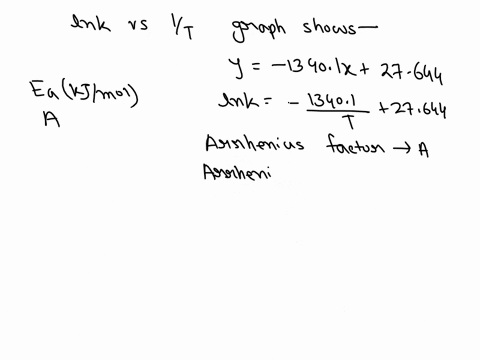 lnk vs 1/T graph shows—
y = -1340.1x + 27.644
Ea (kJ/mol)
lnk = - 1340.1/T + 27.644
A
Arrhenius factor → A
Arrheni